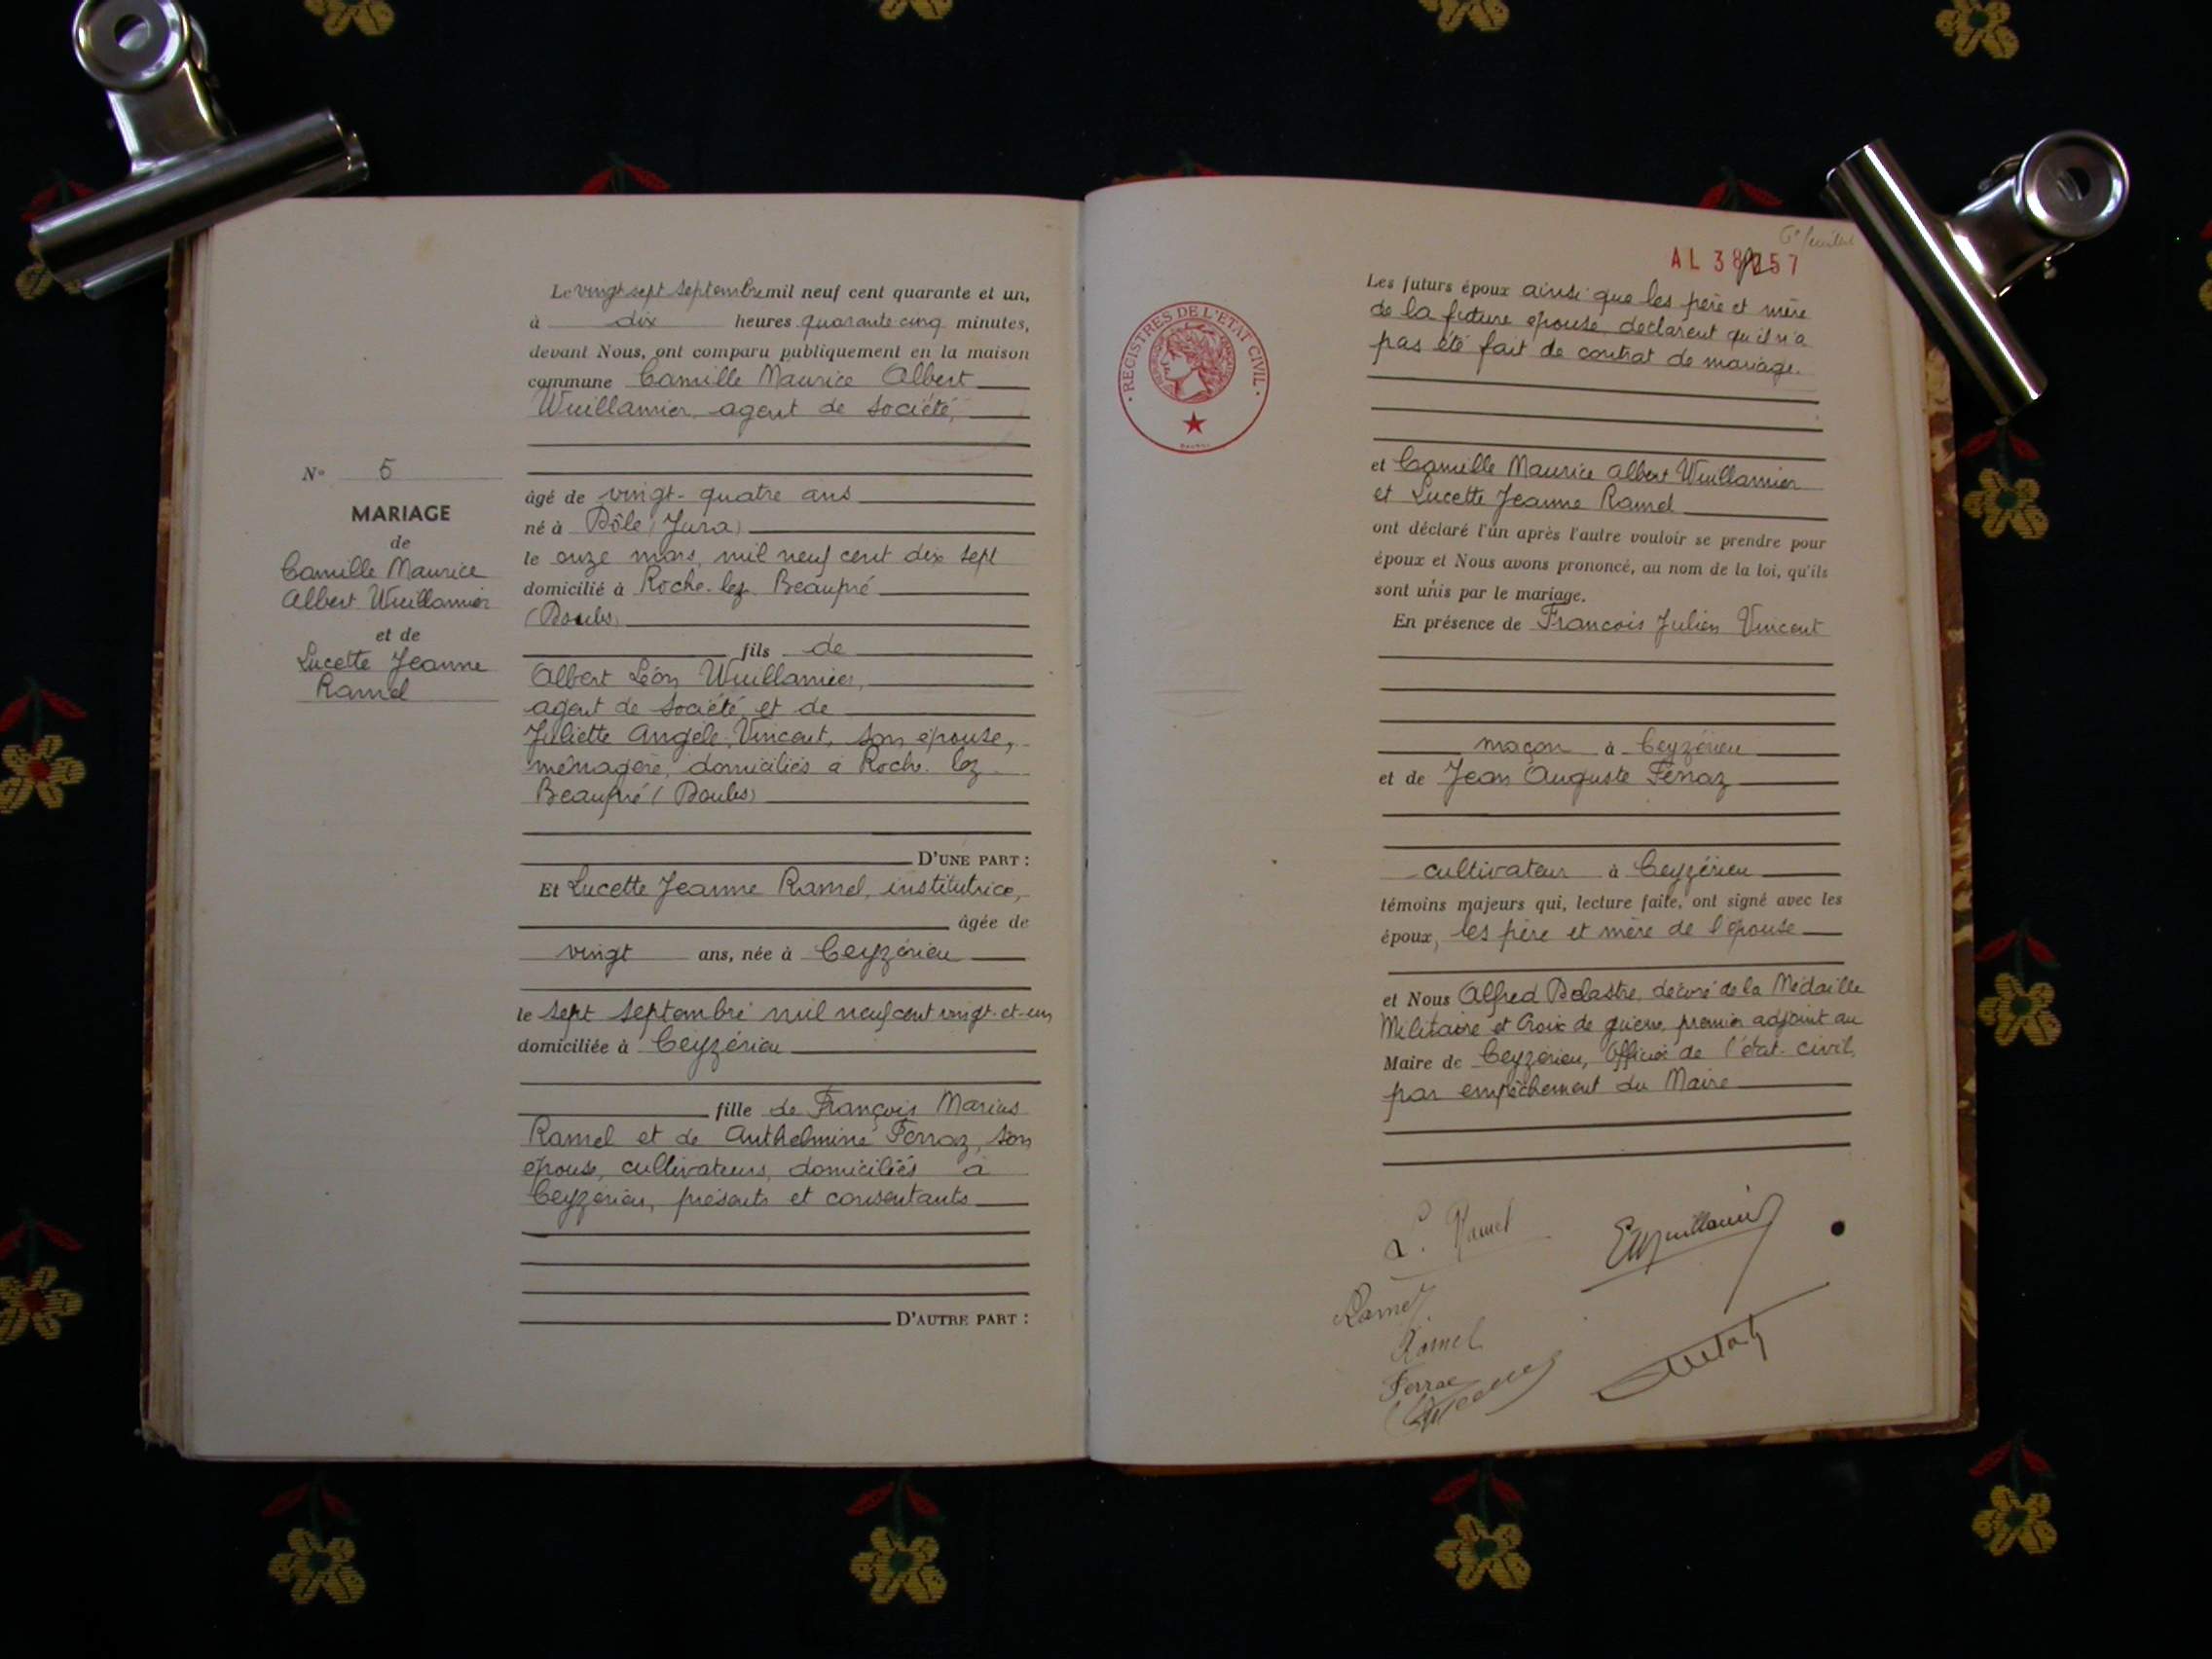 Le vingt sept septembre mil neuf cent quarante et un,
à dix heures quarante cinq minutes,
devant Nous, ont comparu publiquement en la maison
commune Camille Maurice Albert
Wuillamier, agent de société,
N° 5
MARIAGE
de
Camille Maurice
Albert Wuillamier
et de
Lucette Jeanne
Ramel
âgé de vingt-quatre ans
né à Dôle (Jura)
le onze mars, mil neuf cent dix sept
domicilié à Roche-lez-Beaupré
(Doubs)
fils de
Albert Léon Wuillamier,
agent de société, et de
Juliette Angèle Vincent, son épouse,
ménagère, domiciliés à Roche-lez-
Beaupré (Doubs)
D'UNE PART :
Et Lucette Jeanne Ramel, institutrice,
âgée de
vingt ans, née à Ceyzérieu
le sept septembre mil neuf cent vingt-et-un
domiciliée à Ceyzérieu
fille de François Marius
Ramel et de Anthelmine Ferraz, son
épouse, cultivateurs, domiciliés à
Ceyzérieu, présents et consentants
D'AUTRE PART :
AL 38 257
REGISTRES DE L'ETAT CIVIL
Les futurs époux ainsi que les père et mère
de la future épouse déclarent qu'il n'a
pas été fait de contrat de mariage.
et Camille Maurice Albert Wuillamier
et Lucette Jeanne Ramel
ont déclaré l'un après l'autre vouloir se prendre pour
époux et Nous avons prononcé, au nom de la loi, qu'ils
sont unis par le mariage.
En présence de Francois Julien Vincent
maçon à Ceyzérieu
et de Jean Auguste Ferraz
cultivateur à Ceyzérieu
témoins majeurs qui, lecture faite, ont signé avec les
époux, les père et mère de l'épouse
et Nous Alfred Delastre, décoré de la Médaille
Militaire et Croix de guerre, premier adjoint au
Maire de Ceyzérieu, Officier de l'état-civil,
par empêchement du Maire
L. Ramel
Wuillamier
Ramel
Ramel
Ferraz